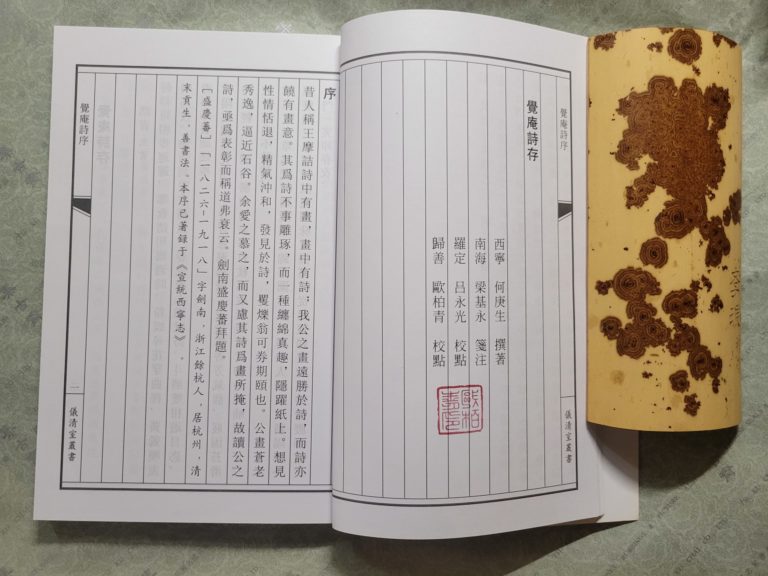 覺庵詩序
覺庵詩存
西寧 何庚生 撰著
南海 梁基永 箋注
羅定 呂永光 校點
歸善 歐柏青 校點
儀清室叢書
序
昔人稱王摩詰詩中有畫，畫中有詩；我公之畫遠勝於詩，而詩亦
饒有畫意。其爲詩不事雕琢，而一種纏綿真趣，隱躍紙上。想見
性情恬退，精氣沖和，發見於詩，矍爍翁可券期頤也。公畫蒼老
秀逸，逼近石谷。余愛之慕之，而又慮其詩爲畫所掩，故讀公之
詩，亟爲表彰而稱道弗衰云。劍南盛慶蕃拜題。
［盛慶蕃］［一八二六-一九一八］字劍南，浙江餘杭人，居杭州，清
末貢生，善書法、本序已著録于《宣統西寧志》。
覺庵詩序
一
儀清室叢書